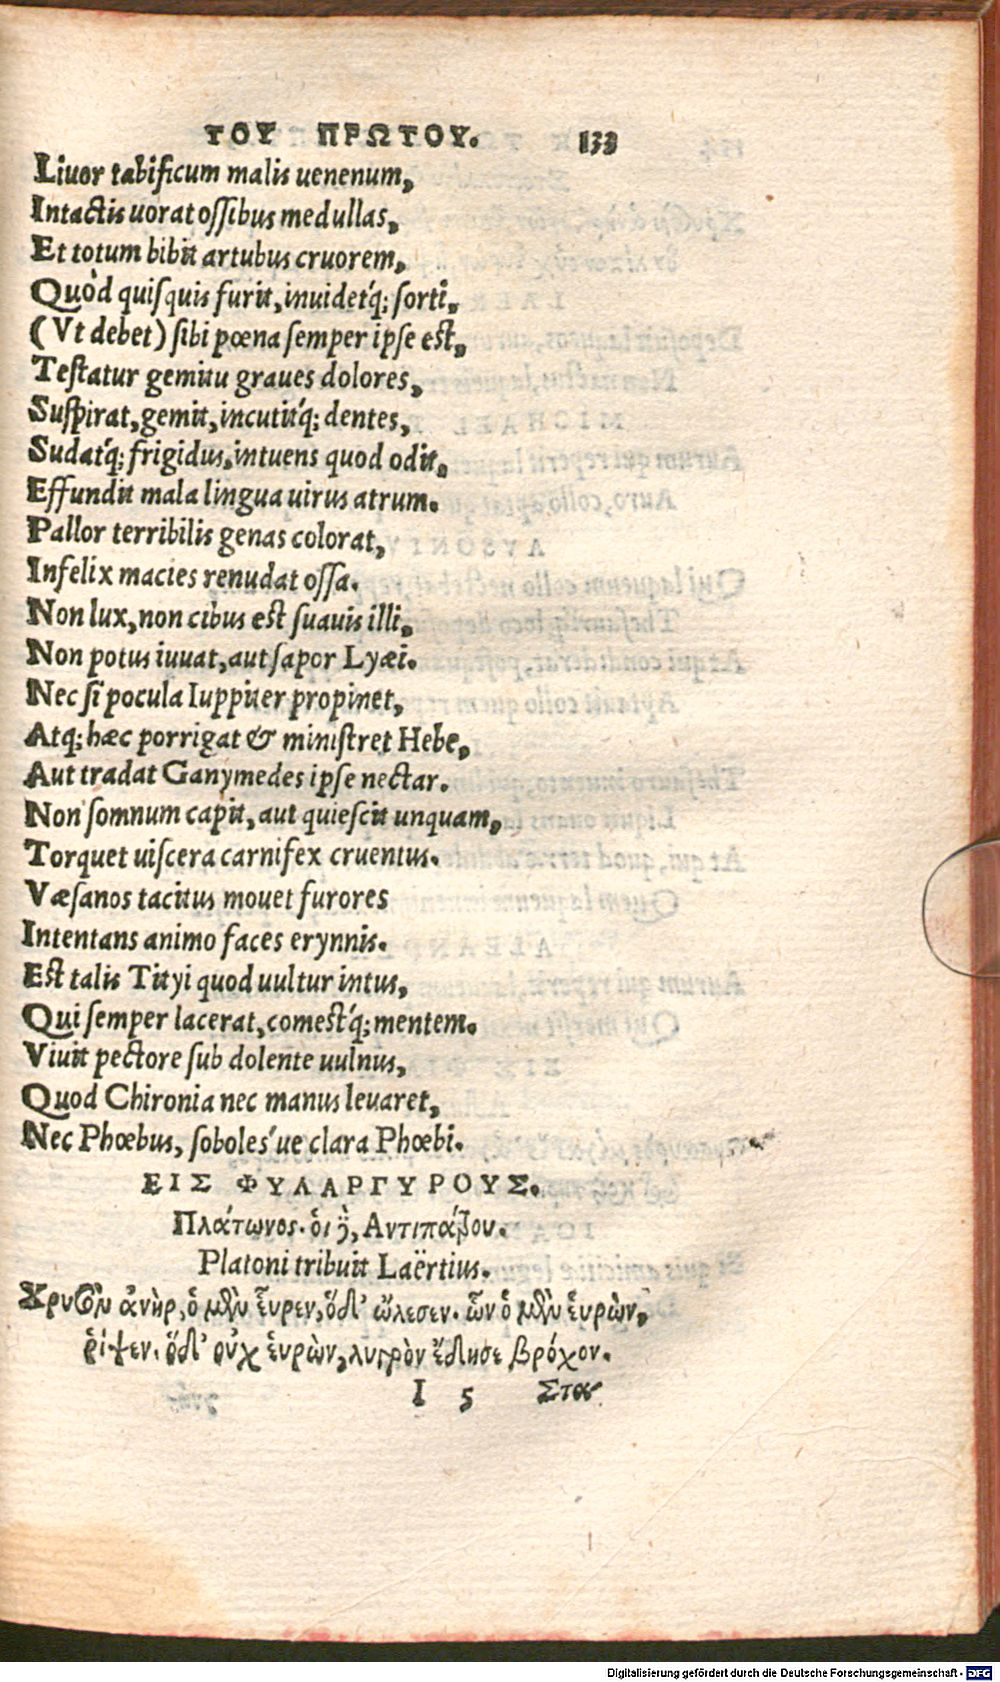 ΤΟΥ ΠΡΩΤΟΥ. 133
Liuor tabificum malis uenenum,
Intactis uorat ossibus medullas,
Et totum bibit artubus cruorem,
Quòd quisquis furit, inuidetq́; sorti,
(Vt debet) sibi pœna semper ipse est,
Testatur gemitu graues dolores,
Suspirat, gemit, incutitq́; dentes,
Sudatq́; frigidus, intuens quod odit,
Effundit mala lingua uirus atrum.
Pallor terribilis genas colorat,
Infelix macies renudat ossa.
Non lux, non cibus est suauis illi,
Non potus iuuat, aut sapor Lyæi.
Nec si pocula Iuppiter propinet,
Atq; hæc porrigat & ministret Hebe,
Aut tradat Ganymedes ipse nectar.
Non somnum capit, aut quiescit unquam,
Torquet uiscera carnifex cruentus.
Væsanos tacitus mouet furores
Intentans animo faces erynnis.
Est talis Tityi quod uultur intus,
Qui semper lacerat, comestq́; mentem.
Viuit pectore sub dolente uulnus,
Quod Chironia nec manus leuaret,
Nec Phœbus, soboles´ue clara Phœbi.
ΕΙΣ ΦΥΛΑΡΓΥΡΟΥΣ.
Πλάτωνος. ὁι δὲ, Αντιπάτρου.
Platoni tribuit Laërtius.
Χρυσὸν ἀνὴρ, ὁ μὲν ἑυρεν, ὁδ᾽ ὤλεσεν. ὧν ὁ μὲν ἑυρὼν,
ῥίψεν. ὅδ᾽ οὐχ ἑυρὼν, λυγρὸν ἔδησε βρόχον.
I 5 Στα